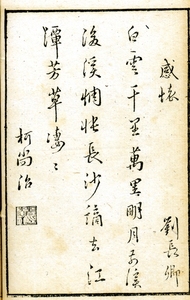 感懷
劉長卿
白雲千里萬里明月前溪
後溪惆悵長沙謫去江
潭芳草萋〻
柯尚治